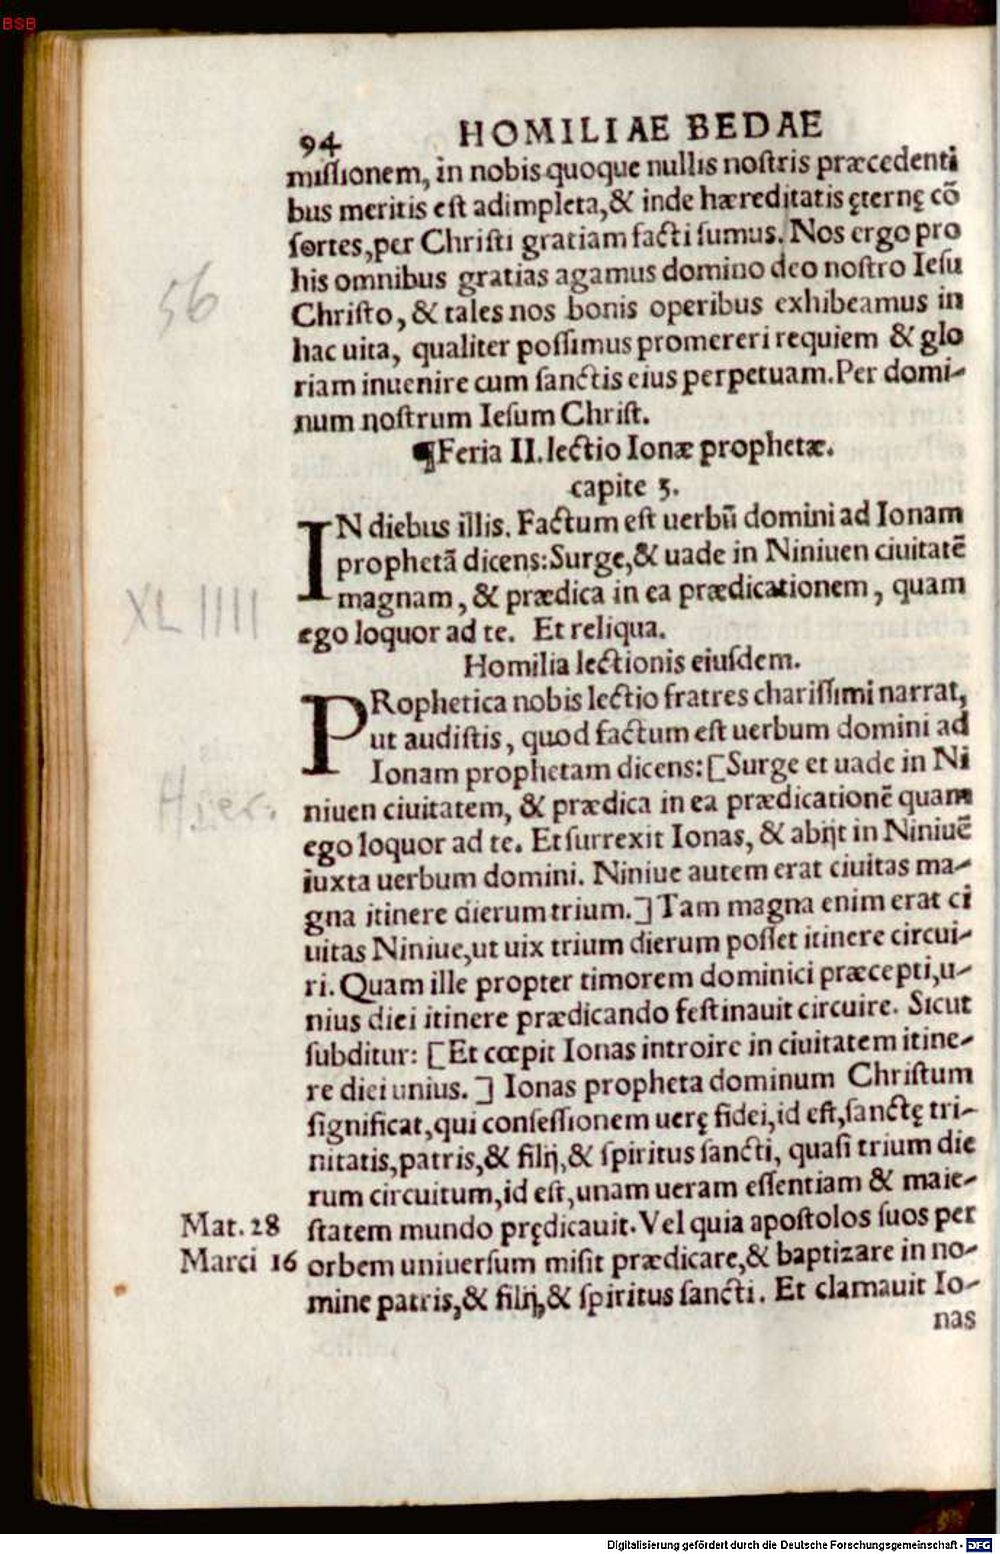 BSB
94 HOMILIAE BEDAE
missionem, in nobis quoque nullis nostris præcedenti
bus meritis est adimpleta, & inde hæreditatis ęternę cõ
sortes, per Christi gratiam facti sumus. Nos ergo pro
his omnibus gratias agamus domino deo nostro Iesu
Christo, & tales nos bonis operibus exhibeamus in
56
hac uita, qualiter possimus promereri requiem & glo
riam inuenire cum sanctis eius perpetuam. Per domi-
num nostrum Iesum Christ.
¶Feria II. lectio Ionæ prophetæ.
capite 3.
IN diebus illis. Factum est uerbũ domini ad Ionam
prophetã dicens: Surge, & uade in Niniuen ciuitatẽ
magnam, & prædica in ea prædicationem, quam
XLIIII
ego loquor ad te. Et reliqua.
Homilia lectionis eiusdem.
PRophetica nobis lectio fratres charissimi narrat,
ut audistis, quod factum est uerbum domini ad
Ionam prophetam dicens: [Surge et uade in Ni
niuen ciuitatem, & prædica in ea prædicationẽ quam
Hier.
ego loquor ad te. Et surrexit Ionas, & abijt in Niniuẽ
iuxta uerbum domini. Niniue autem erat ciuitas ma-
gna itinere dierum trium.] Tam magna enim erat ci
uitas Niniue, ut uix trium dierum posset itinere circui-
ri. Quam ille propter timorem dominici præcepti, u-
nius diei itinere prædicando festinauit circuire. Sicut
subditur: [Et cœpit Ionas introire in ciuitatem itine-
re diei unius.] Ionas propheta dominum Christum
significat, qui confessionem uerę fidei, id est, sanctę tri-
nitatis, patris, & filij, & spiritus sancti, quasi trium die
rum circuitum, id est, unam ueram essentiam & maie-
Mat. 28 statem mundo prędicauit. Vel quia apostolos suos per
Marci 16 orbem uniuersum misit prædicare, & baptizare in no-
mine patris, & filij, & spiritus sancti. Et clamauit Io-
nas
Digitalisierung gefördert durch die Deutsche Forschungsgemeinschaft - DFG